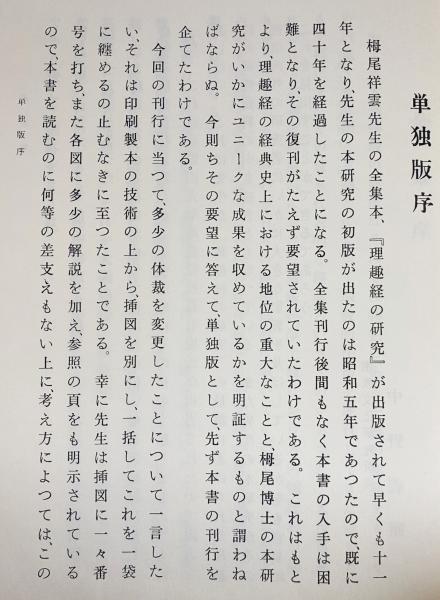 単独版序
栂尾祥雲先生の全集本、『理趣経の研究』が出版されて早くも十一
年となり、先生の本研究の初版が出たのは昭和五年であつたので、既に
四十年を経過したことになる。全集刊行後間もなく本書の入手は困
難となり、その復刊がたえず要望されていたわけである。これはもと
より、理趣経の経典史上における地位の重大なことと、栂尾博士の本研
究がいかにユニークな成果を収めているかを明証するものと謂わね
ばならぬ。今則ちその要望に答えて、単独版として、先ず本書の刊行を
企てたわけである。
今回の刊行に当つて、多少の体裁を変更したことについて一言した
い、それは印刷製本の技術の上から、挿図を別にし、一括してこれを一袋
に纏めるの止むなきに至つたことである。幸に先生は挿図に一々番
号を打ち、また各図に多少の解説を加え、参照の頁をも明示されている
ので、本書を読むのに何等の差支えもない上に、考え方によつては、この
単独版序